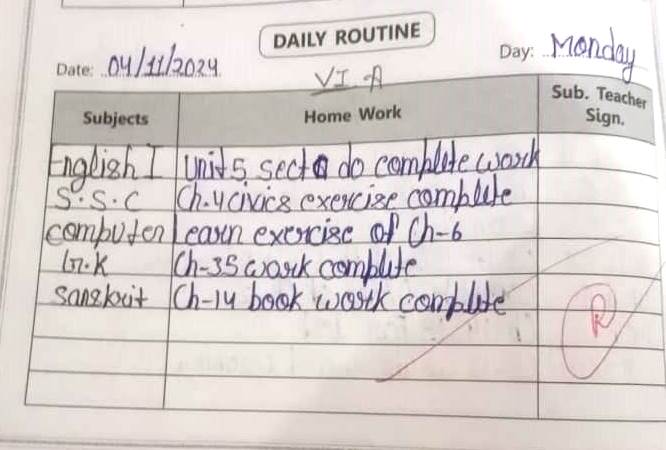 DAILY ROUTINE
Date: 04/11/2024 Day: Monday
VI-A
Subjects Home Work Sub. Teacher Sign.
English I Unit 5 sect a do complete work
S.S.C Ch.4 civics exercise complete
computer Learn exercise of Ch-6
G.K Ch-35 work complete
Sanskrit Ch-14 book work complete
R